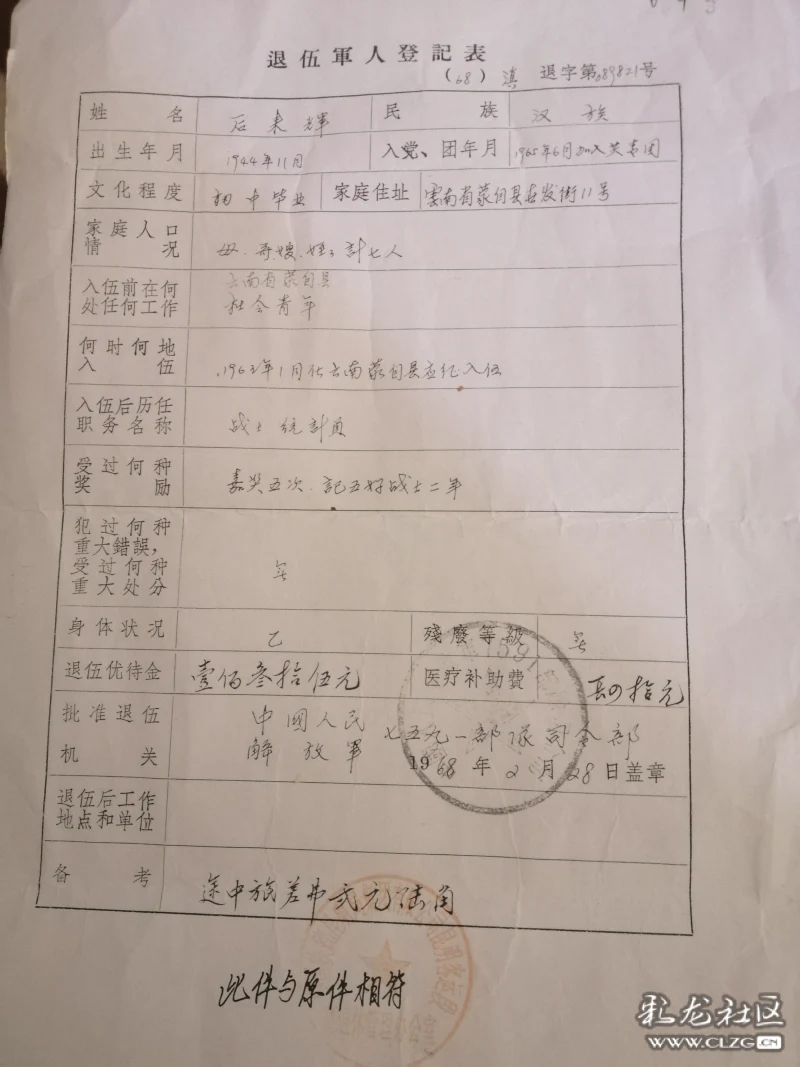 退伍軍人登記表
(68) 滇 退字第089821号
姓名 后来輝 民族 汉族
出生年月 1944年11月 入党、团年月 1965年6月加入共青团
文化程度 初中毕业 家庭住址 雲南省蒙自县 街11号
家庭人口
情况
母.哥嫂. 計七人
入伍前在何
处任何工作
云南省蒙自县
社会青年
何时何地
入伍
1963年1月 云南蒙自县应征入伍
入伍后历任
职务名称
战士 統計員
受过何种
奖励
嘉奖五次.記五好战士二年
犯过何种
重大錯誤,
受过何种
重大处分
无
身体状况 乙 殘廢等級 无
退伍优待金 壹佰叁拾伍元 医疗补助費 拾元
批准退伍
机关
中國人民
解放軍
七五九一部隊司令部
1968年2月28日盖章
退伍后工作
地点和单位
备考 途中旅差弗弍元陆角
此件与原件相符
彩龙社区
WWW.CLZG.CN